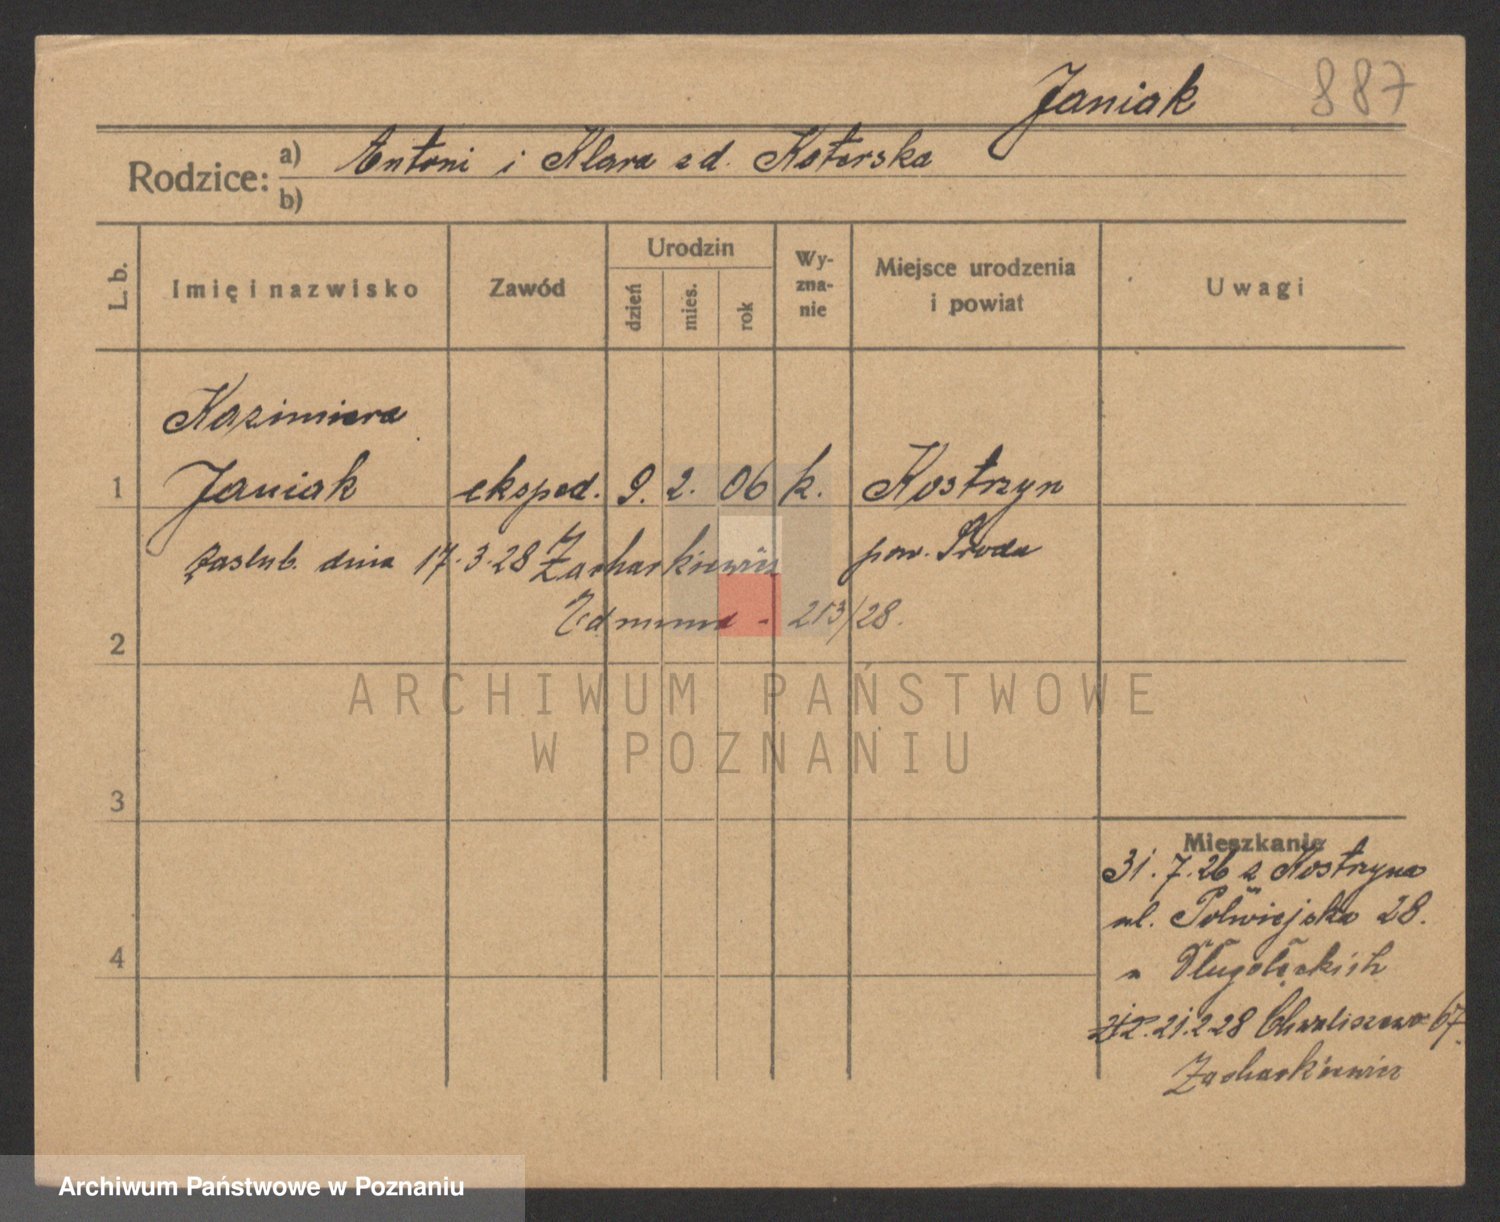 Janiak 887
Rodzice: a) Antoni i Klara zd. Koterska
b)
L. b. Imię i nazwisko Zawód Urodzin dzień mies. rok Wyznanie Miejsce urodzenia i powiat Uwagi
Kazimiera
1 Janiak eksped. 9. 2. 06 k. Kostrzyn
zaślub. dnia 17.3.28 Zacharkiewicz pow. Środa
Edmund - 213/28.
2
ARCHIWUM PAŃSTWOWE
W POZNANIU
3
Mieszkanie
31.7.26 z Kostrzyna
ul. Półwiejska 28.
4
21.2.28 Chwaliszewo 67
Zacharkiewicz
Archiwum Państwowe w Poznaniu